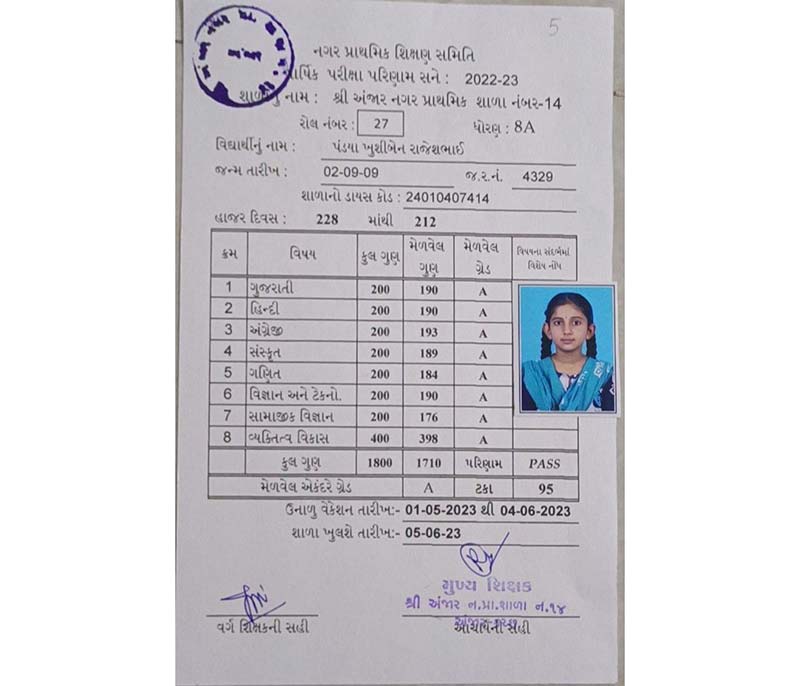 5
નગર પ્રાથમિક શિક્ષણ સમિતિ
વાર્ષિક પરીક્ષા પરિણામ સને : 2022-23
શાળાનું નામ : શ્રી અંજાર નગર પ્રાથમિક શાળા નંબર-14
રોલ નંબર : 27 ધોરણ : 8A
વિદ્યાર્થીનું નામ : પંડયા ખુશીબેન રાજેશભાઈ
જન્મ તારીખ : 02-09-09 જ.ર.નં. 4329
શાળાનો ડાયસ કોડ : 24010407414
હાજર દિવસ : 228 માંથી 212
ક્રમ વિષય કુલ ગુણ મેળવેલ ગુણ મેળવેલ ગ્રેડ વિષયના સંદર્ભમાં વિશેષ નોંધ
1 ગુજરાતી 200 190 A
2 હિન્દી 200 190 A
3 અંગ્રેજી 200 193 A
4 સંસ્કૃત 200 189 A
5 ગણિત 200 184 A
6 વિજ્ઞાન અને ટેકનો. 200 190 A
7 સામાજીક વિજ્ઞાન 200 176 A
8 વ્યકિતત્વ વિકાસ 400 398 A
કુલ ગુણ 1800 1710 પરિણામ PASS
મેળવેલ એકંદરે ગ્રેડ A ટકા 95
ઉનાળુ વેકેશન તારીખ:- 01-05-2023 થી 04-06-2023
શાળા ખુલશે તારીખ:- 05-06-23
મુખ્ય શિક્ષક
શ્રી અંજાર ન.પ્રા.શાળા નં.૧૪
વર્ગ શિક્ષકની સહી આચાર્યની સહી